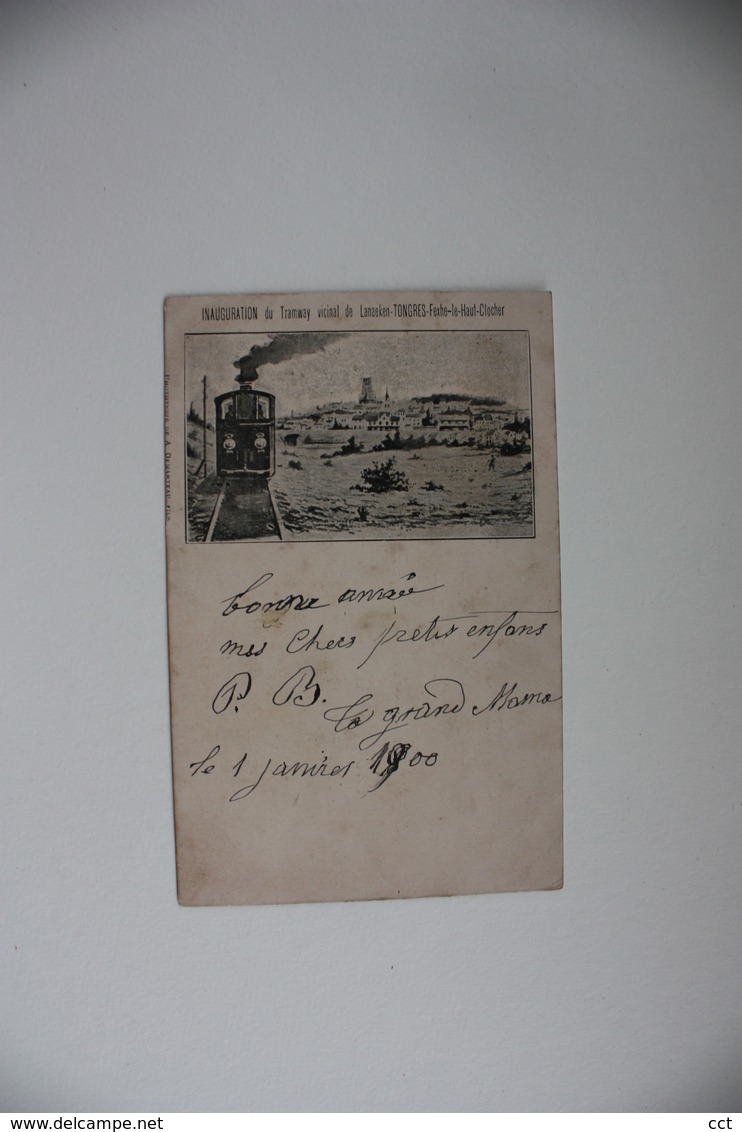 INAUGURATION du Tramway vicinal de Lanaeken-TONGRES-Fexhe-le-Haut-Clocher
bonne année
mes Chers petits enfans
P. B.
la grand Mama
le 1 janvier 1900
delcampe.net
cct